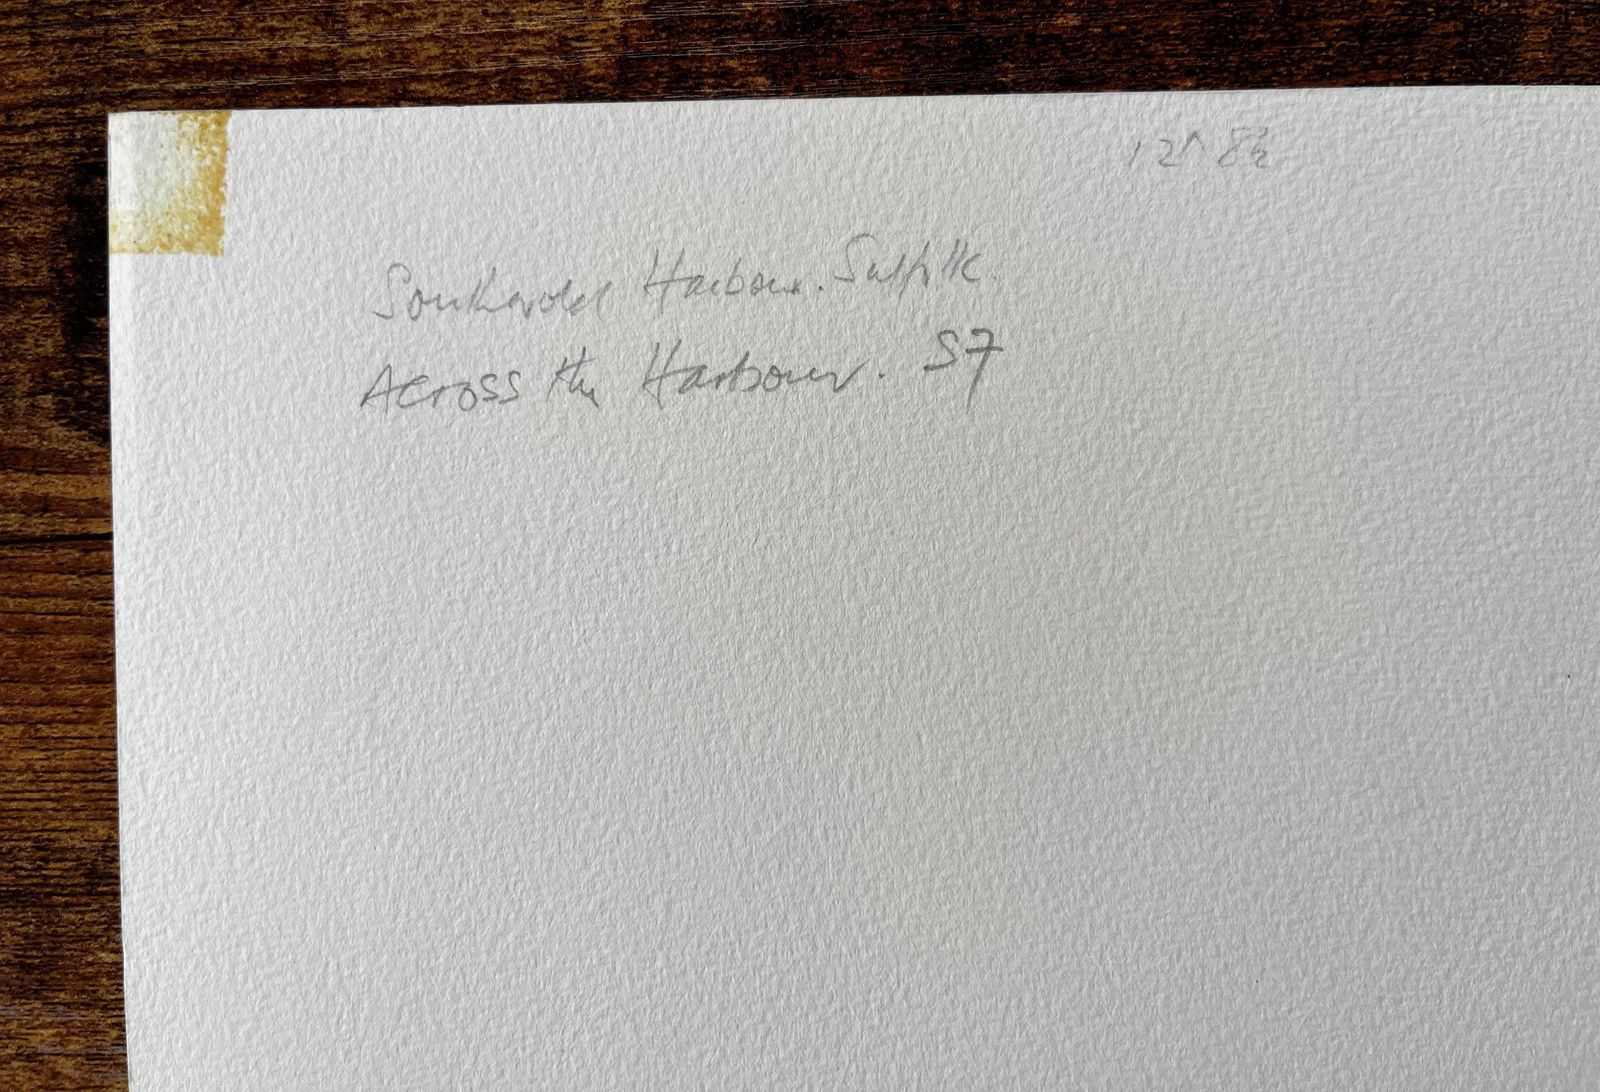 Southwold Harbour. Suffolk.
Across the Harbour. S7